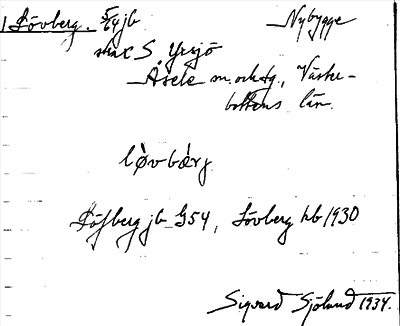 1 Lövberg. 5/4 jb Nybygge
strax S Yxsjö
Åsele m. o. tg., Väster-
bottens län.
lòvbærj
Löfberg jb G54, Lövberg hb 1930
Sigvard Sjölund 1934.